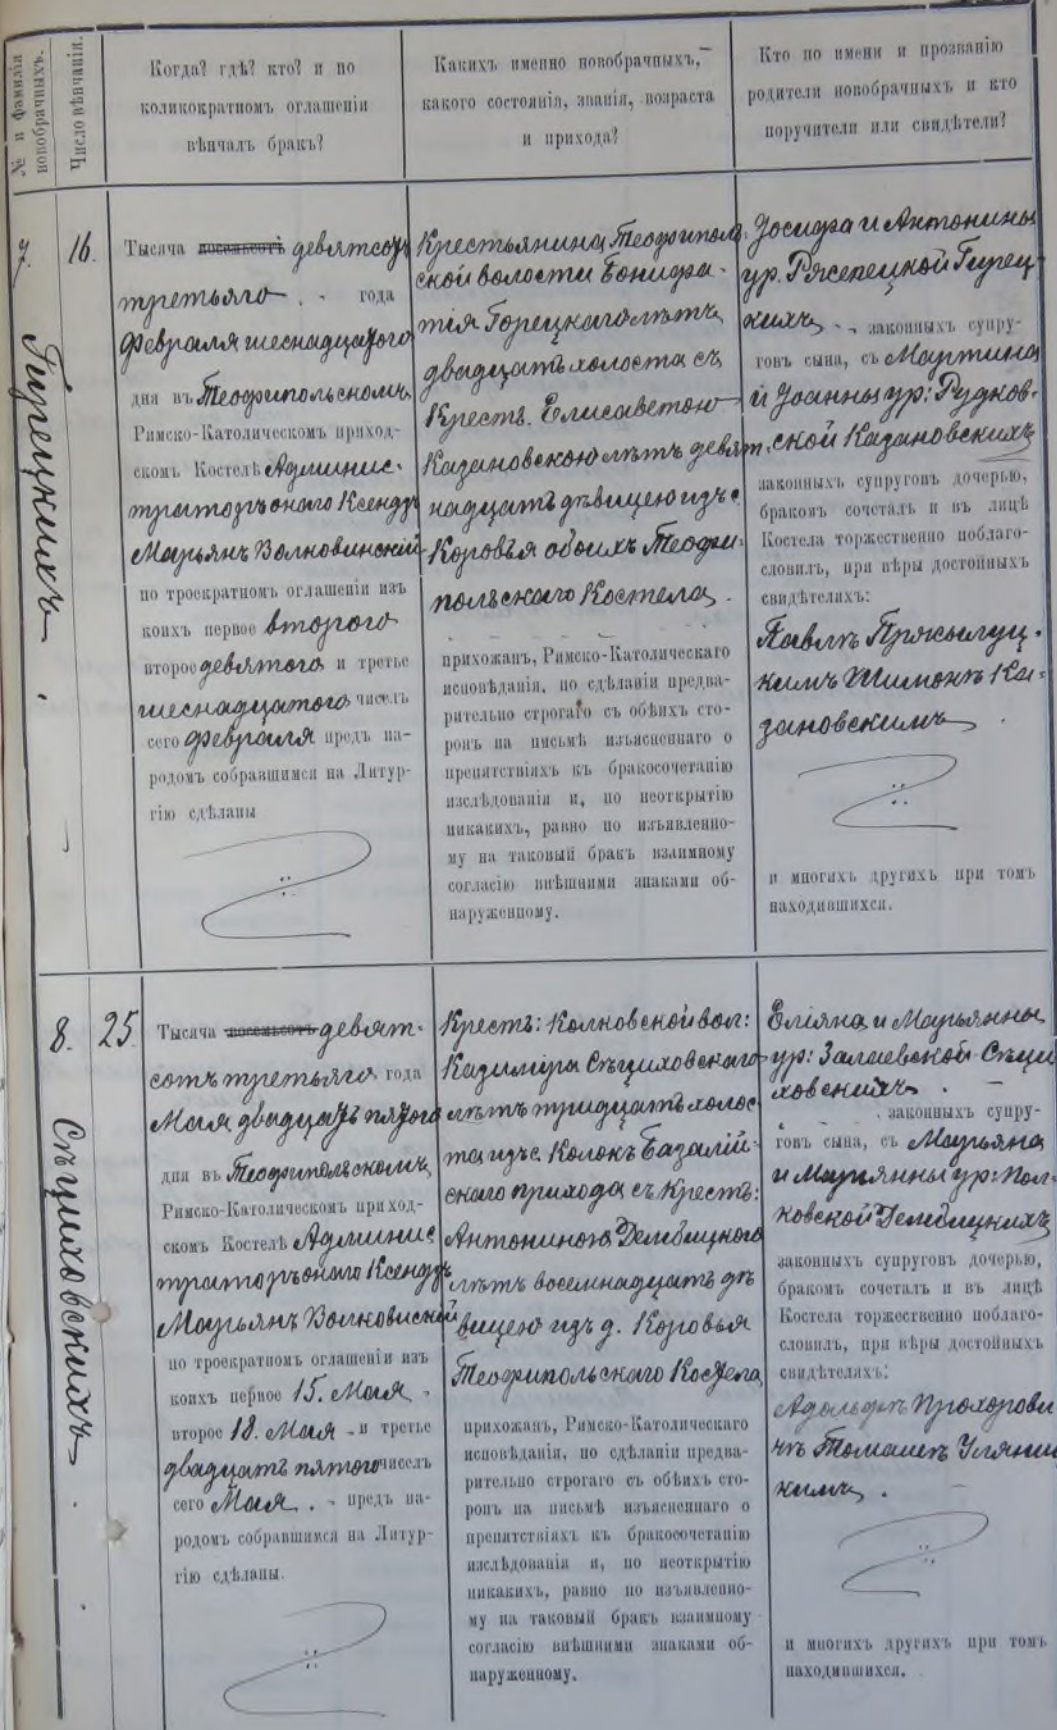 № и фамилія
новобрачныхъ.
Число вѣнчанія.
Когда? гдѣ? кто? и по
коликократномъ оглашеніи
вѣнчалъ бракъ?
Какихъ именно новобрачныхъ,
какого состоянія, званія, возраста
и прихода?
Кто по имени и прозванію
родители новобрачныхъ и кто
поручители или свидѣтели?
7.
Гурецкихъ
16.
Тысяча восемьсотъ девятсотъ
третьяго года
Февраля шеснадцатого
дня въ Теофипольскомъ
Римско-Католическомъ приход-
скомъ Костелѣ Админис-
траторъ онаго Ксендзъ
Марьянъ Волковинскій
по троекратномъ оглашеніи изъ
коихъ первое второго
второе девятого и третье
шеснадцатого чиселъ
сего Февраля предъ на-
родомъ собравшимся на Литур-
гію сдѣланы
Крестьянина Теофиполь-
ской волости Бонифа-
тія Горецкаго лѣтъ
двадцать холоста съ
Крестъ. Елисаветою
Казановскою лѣтъ девят-
надцать дѣвицею изъ с.
Коровья обоихъ Теофи-
польскаго Костела.
прихожанъ, Римско-Католическаго
исповѣданія, по сдѣланіи предва-
рительно строгаго съ обѣихъ сто-
ронъ на письмѣ изъясненнаго о
препятствіяхъ къ бракосочетанію
изслѣдованія и, по неоткрытію
никакихъ, равно по изъявленно-
му на таковый бракъ взаимному
согласію внѣшними знаками об-
наруженному.
Іосифа и Антонины
ур. Ржепецкой Гурец-
кихъ законныхъ супру-
говъ сына, съ Мартина
и Іоанны ур: Рудков-
ской Казановскихъ
законныхъ супруговъ дочерью,
бракомъ сочеталъ и въ лицѣ
Костела торжественно поблаго-
словилъ, при вѣры достойныхъ
свидѣтеляхъ:
Павлѣ Пржылуц-
кимъ Шимонѣ Ка-
зановскимъ
и многихъ другихъ при томъ
находившихся.
8.
Сѣциховскихъ
25
Тысяча восемьсотъ девят-
сотъ третьяго года
Мая двадцать пятого
дня въ Теофипольскомъ
Римско-Католическомъ приход-
скомъ Костелѣ Админис
траторъ онаго Ксендзъ
Марьянъ Волковиский
по троекратномъ оглашеніи изъ
коихъ первое 15. Мая
второе 18. Мая и третье
двадцать пятого чиселъ
сего Мая. предъ на-
родомъ собравшимся на Литур-
гію сдѣланы.
Крестъ: Колковской вол:
Казиміра Сѣциховскаго
лѣтъ тридцать холос
та изъ с. Колокъ Базалій-
скаго прихода съ Крестъ:
Антониною Дембицкою
лѣтъ восемнадцать дѣ
вицею изъ д. Коровья
Теофипольскаго Костела
прихожанъ, Римско-Католическаго
исповѣданія, по сдѣланіи предва-
рительно строгаго съ обѣихъ сто-
ронъ на письмѣ изъясненнаго о
препятствіяхъ къ бракосочетанію
изслѣдованія и, по неоткрытію
никакихъ, равно по изъявленно-
му на таковый бракъ взаимному
согласію внѣшними знаками об-
наруженному.
Еліяна и Марьянны
ур: Залаевской Сѣци
ховскихъ.
законныхъ супру-
говъ сына, съ Марьяна
и Марьянны ур: Пол-
ковской Дембицкихъ
законныхъ супруговъ дочерью,
бракомъ сочеталъ и въ лицѣ
Костела торжественно поблаго-
словилъ, при вѣры достойныхъ
свидѣтеляхъ:
Адольфѣ Прохорови
чѣ Томашѣ Уляниц
кимъ.
и многихъ другихъ при томъ
находившихся.